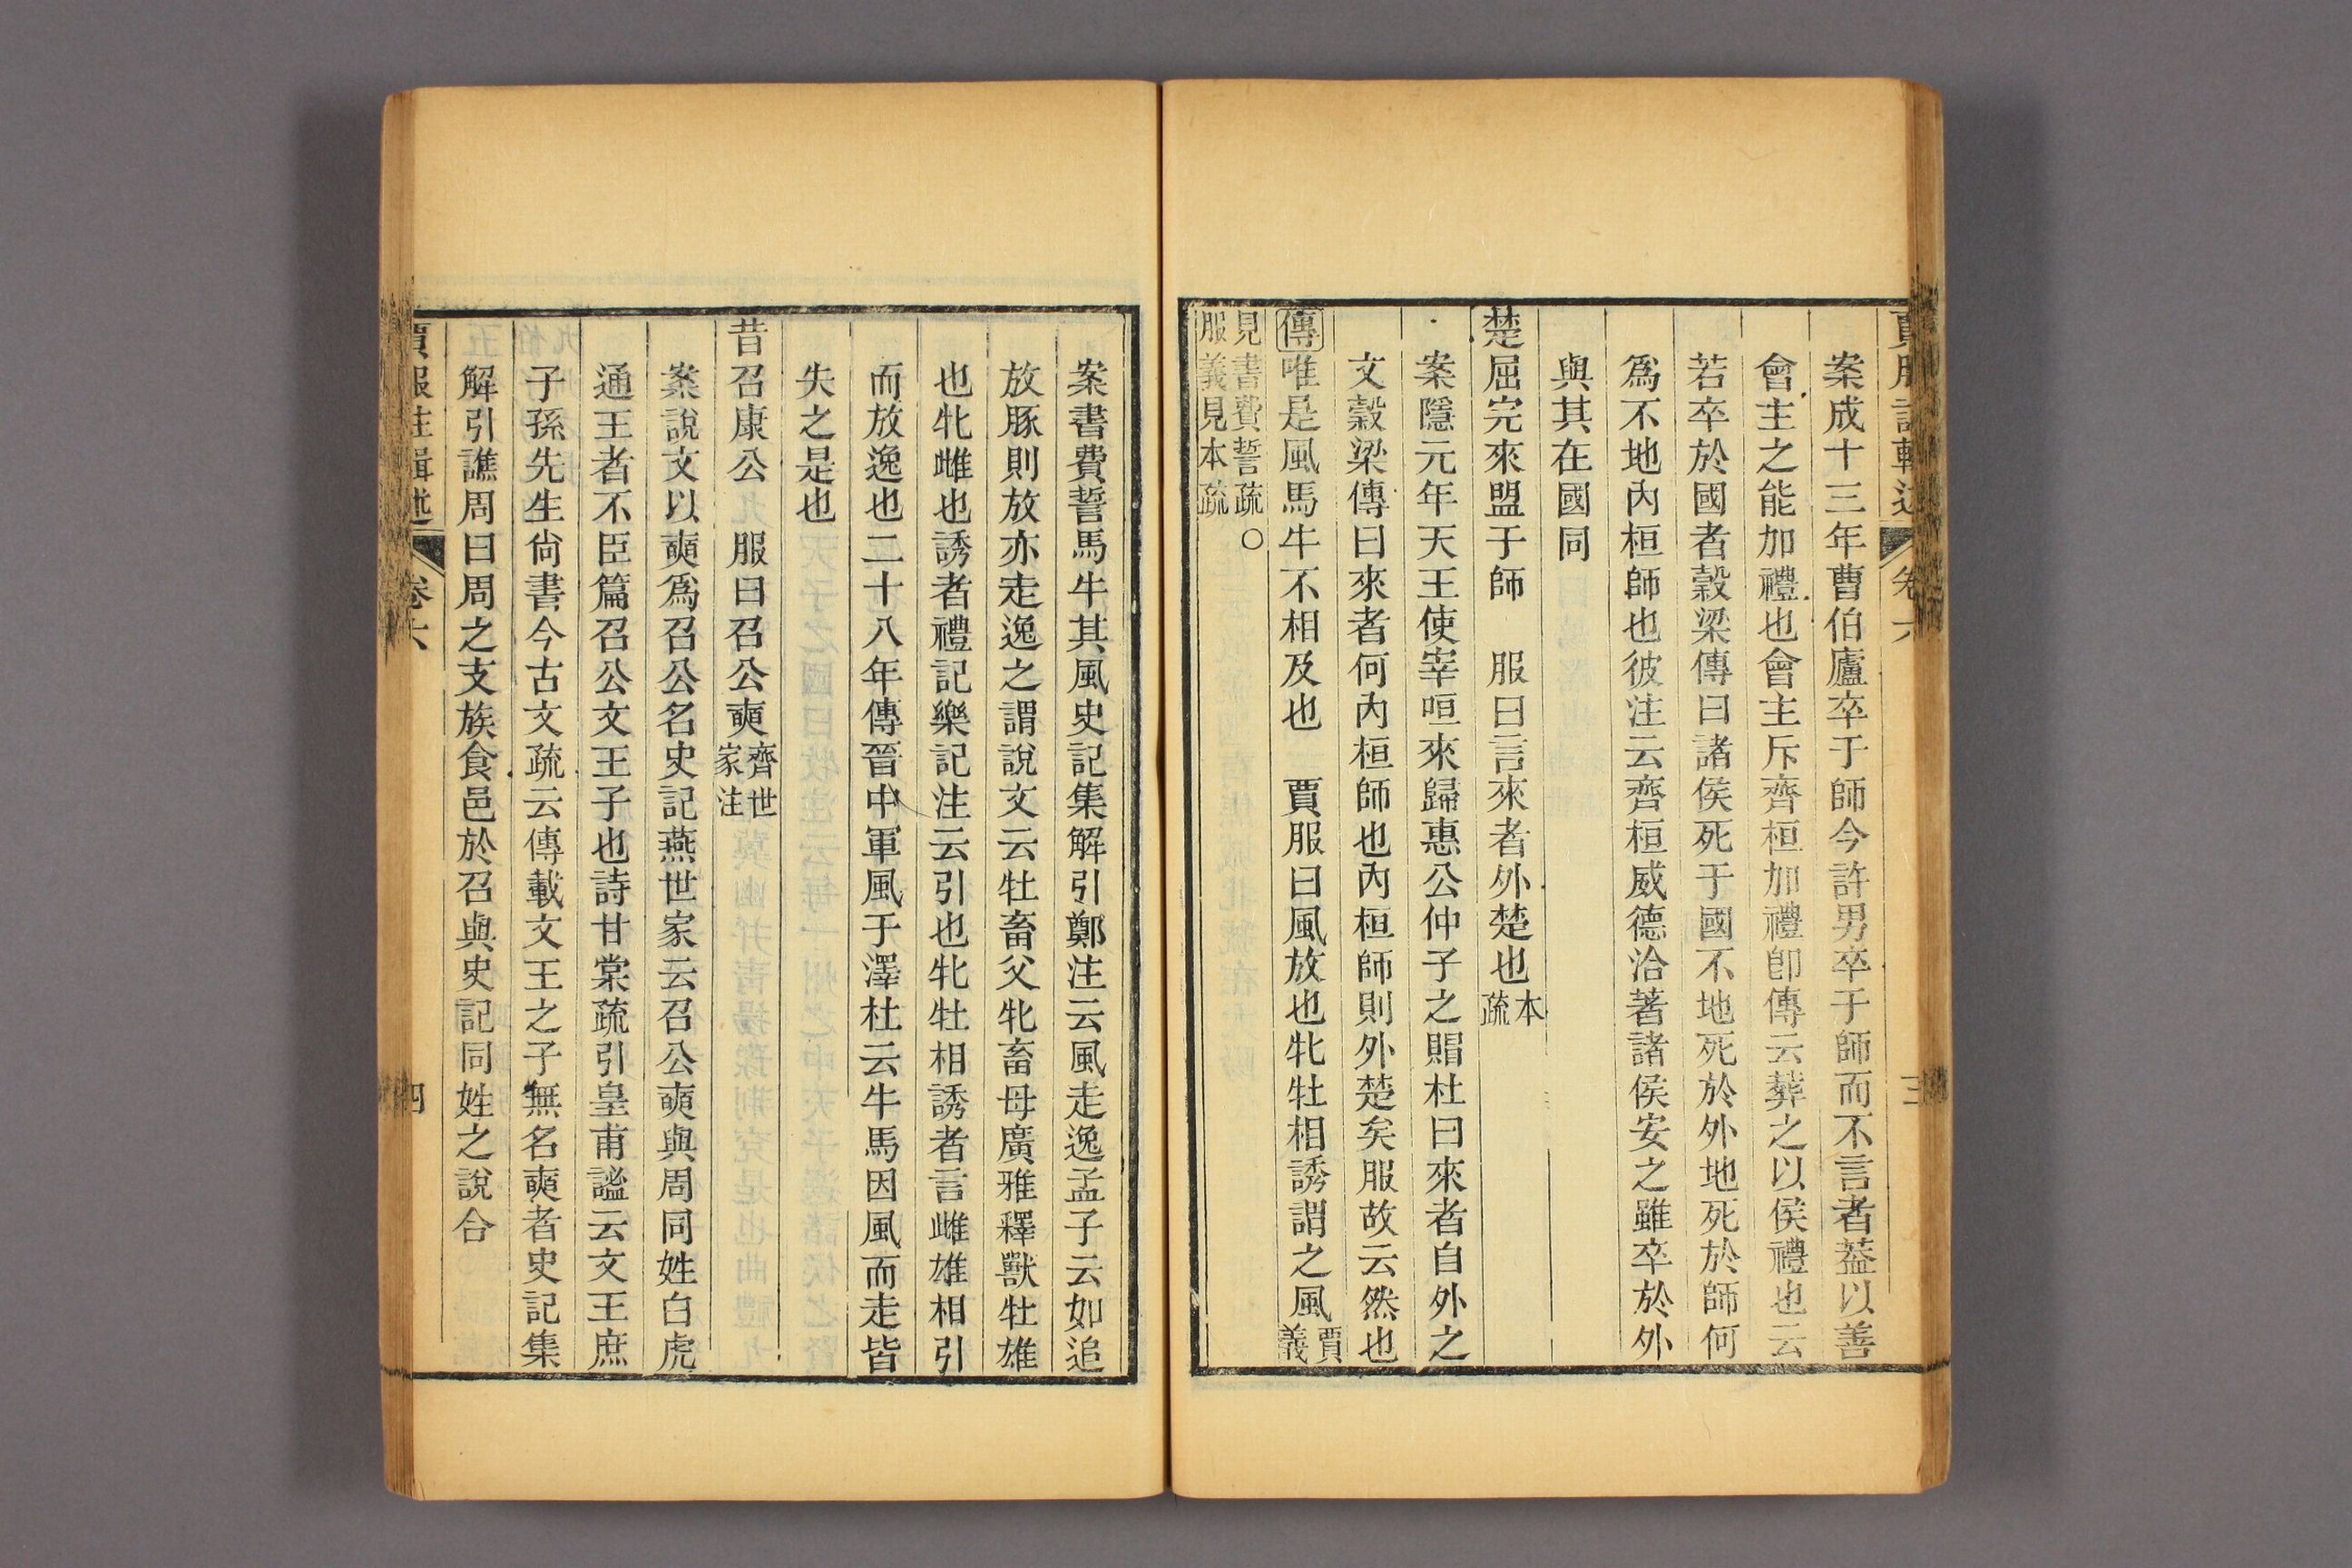 賈服注輯述 卷六 三
案成十三年曹伯廬卒于師今許男卒于師而不言者葢以善
會主之能加禮也會主斥齊桓加禮卽傳云葬之以侯禮也云
若卒於國者穀梁傳曰諸侯死于國不地死於外地死於師何
爲不地內桓師也彼注云齊桓威德洽著諸侯安之雖卒於外
與其在國同
楚屈完來盟于師 服曰言來者外楚也本疏
案隱元年天王使宰咺來歸惠公仲子之賵杜曰來者自外之
文穀梁傳曰來者何內桓師也內桓師則外楚矣服故云然也
傳唯是風馬牛不相及也 賈服曰風放也牝牡相誘謂之風賈義
見書費誓疏○服義見本疏
案書費誓馬牛其風史記集解引鄭注云風走逸孟子云如追
放豚則放亦走逸之謂說文云牡畜父牝畜母廣雅釋獸牡雄
也牝雌也誘者禮記樂記注云引也牝牡相誘者言雌雄相引
而放逸也二十八年傳晉中軍風于澤杜云牛馬因風而走皆
失之是也
昔召康公 服曰召公奭齊世家注
案說文以奭爲召公名史記燕世家云召公奭與周同姓白虎
通王者不臣篇召公文王子也詩甘棠疏引皇甫謐云文王庶
子孫先生尙書今古文疏云傳載文王之子無名奭者史記集
解引譙周曰周之支族食邑於召與史記同姓之說合
賈服注輯述 卷六 四